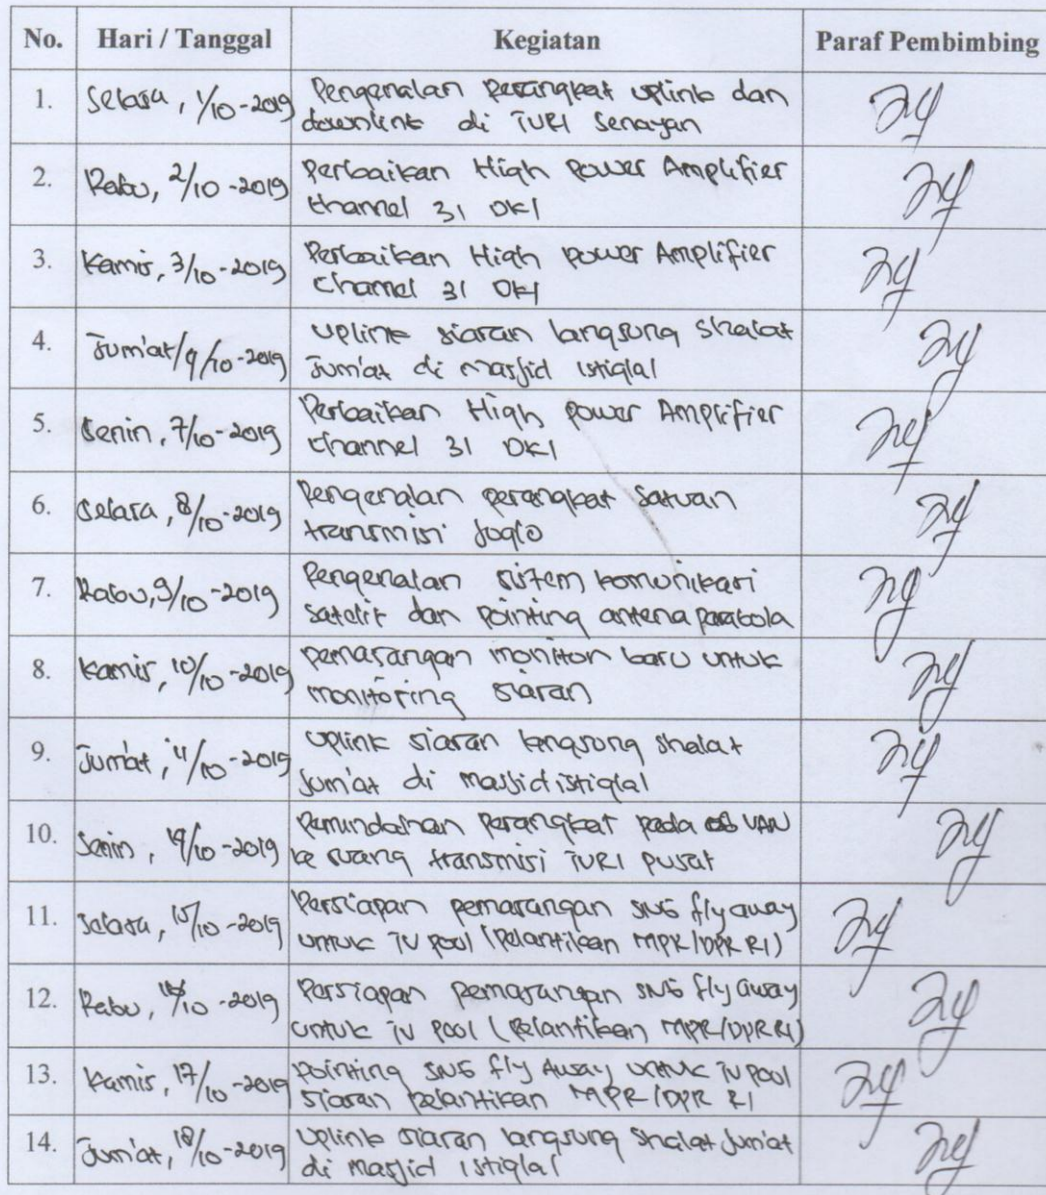 No. Hari / Tanggal Kegiatan Paraf Pembimbing
1. Selasa, 1/10-2019 Pengenalan perangkat uplink dan
downlink di TVRI Senayan
2. Rabu, 2/10-2019 Perbaikan High Power Amplifier
Channel 31 DKI
3. Kamis, 3/10-2019 Perbaikan High Power Amplifier
Channel 31 DKI
4. Jum'at/4/10-2019 Uplink siaran langsung Shalat
Jum'at di masjid istiqlal
5. Senin, 7/10-2019 Perbaikan High Power Amplifier
Channel 31 DKI
6. Selasa, 8/10-2019 Pengenalan perangkat Satuan
transmisi Joglo
7. Rabu, 9/10-2019 Pengenalan sistem komunikasi
satelit dan Pointing antena parabola
8. Kamis, 10/10-2019 pemasangan monitor baru untuk
monitoring siaran
9. Jum'at, 11/10-2019 Uplink siaran langsung shalat
Jum'at di Masjid istiqlal
10. Senin, 14/10-2019 Pemindahan Perangkat pada OB VAN
ke ruang transmisi TVRI pusat
11. Selasa, 15/10-2019 Persiapan pemasangan SNG fly away
untuk TV Pool (Pelantikan MPR/DPR RI)
12. Rabu, 16/10-2019 Persiapan pemasangan SNG fly away
untuk TV Pool (Pelantikan MPR/DPR RI)
13. Kamis, 17/10-2019 Pointing SNG fly Away untuk TV Pool
siaran Pelantikan MPR/DPR RI
14. Jum'at, 18/10-2019 Uplink siaran langsung Shalat Jum'at
di Masjid Istiqlal